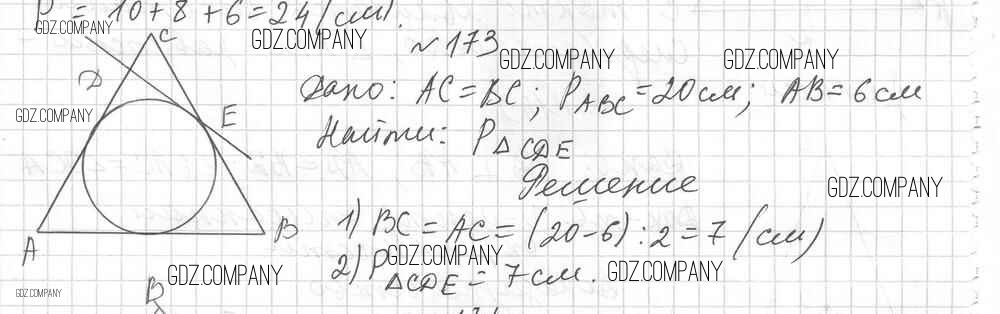 P = 10+8+6=24 (см).
GDZ.COMPANY
C
GDZ.COMPANY
№173
GDZ.COMPANY
GDZ.COMPANY
D
Дано: AC=BC; P ABC=20см; AB=6см
GDZ.COMPANY
E
Найти: P△CDE
Решение
GDZ.COMPANY
1) BC = AC = (20-6):2=7 (см)
A
B
2) P△CDE = 7см.
GDZ.COMPANY
GDZ.COMPANY
GDZ.COMPANY
B
GDZ.COMPANY